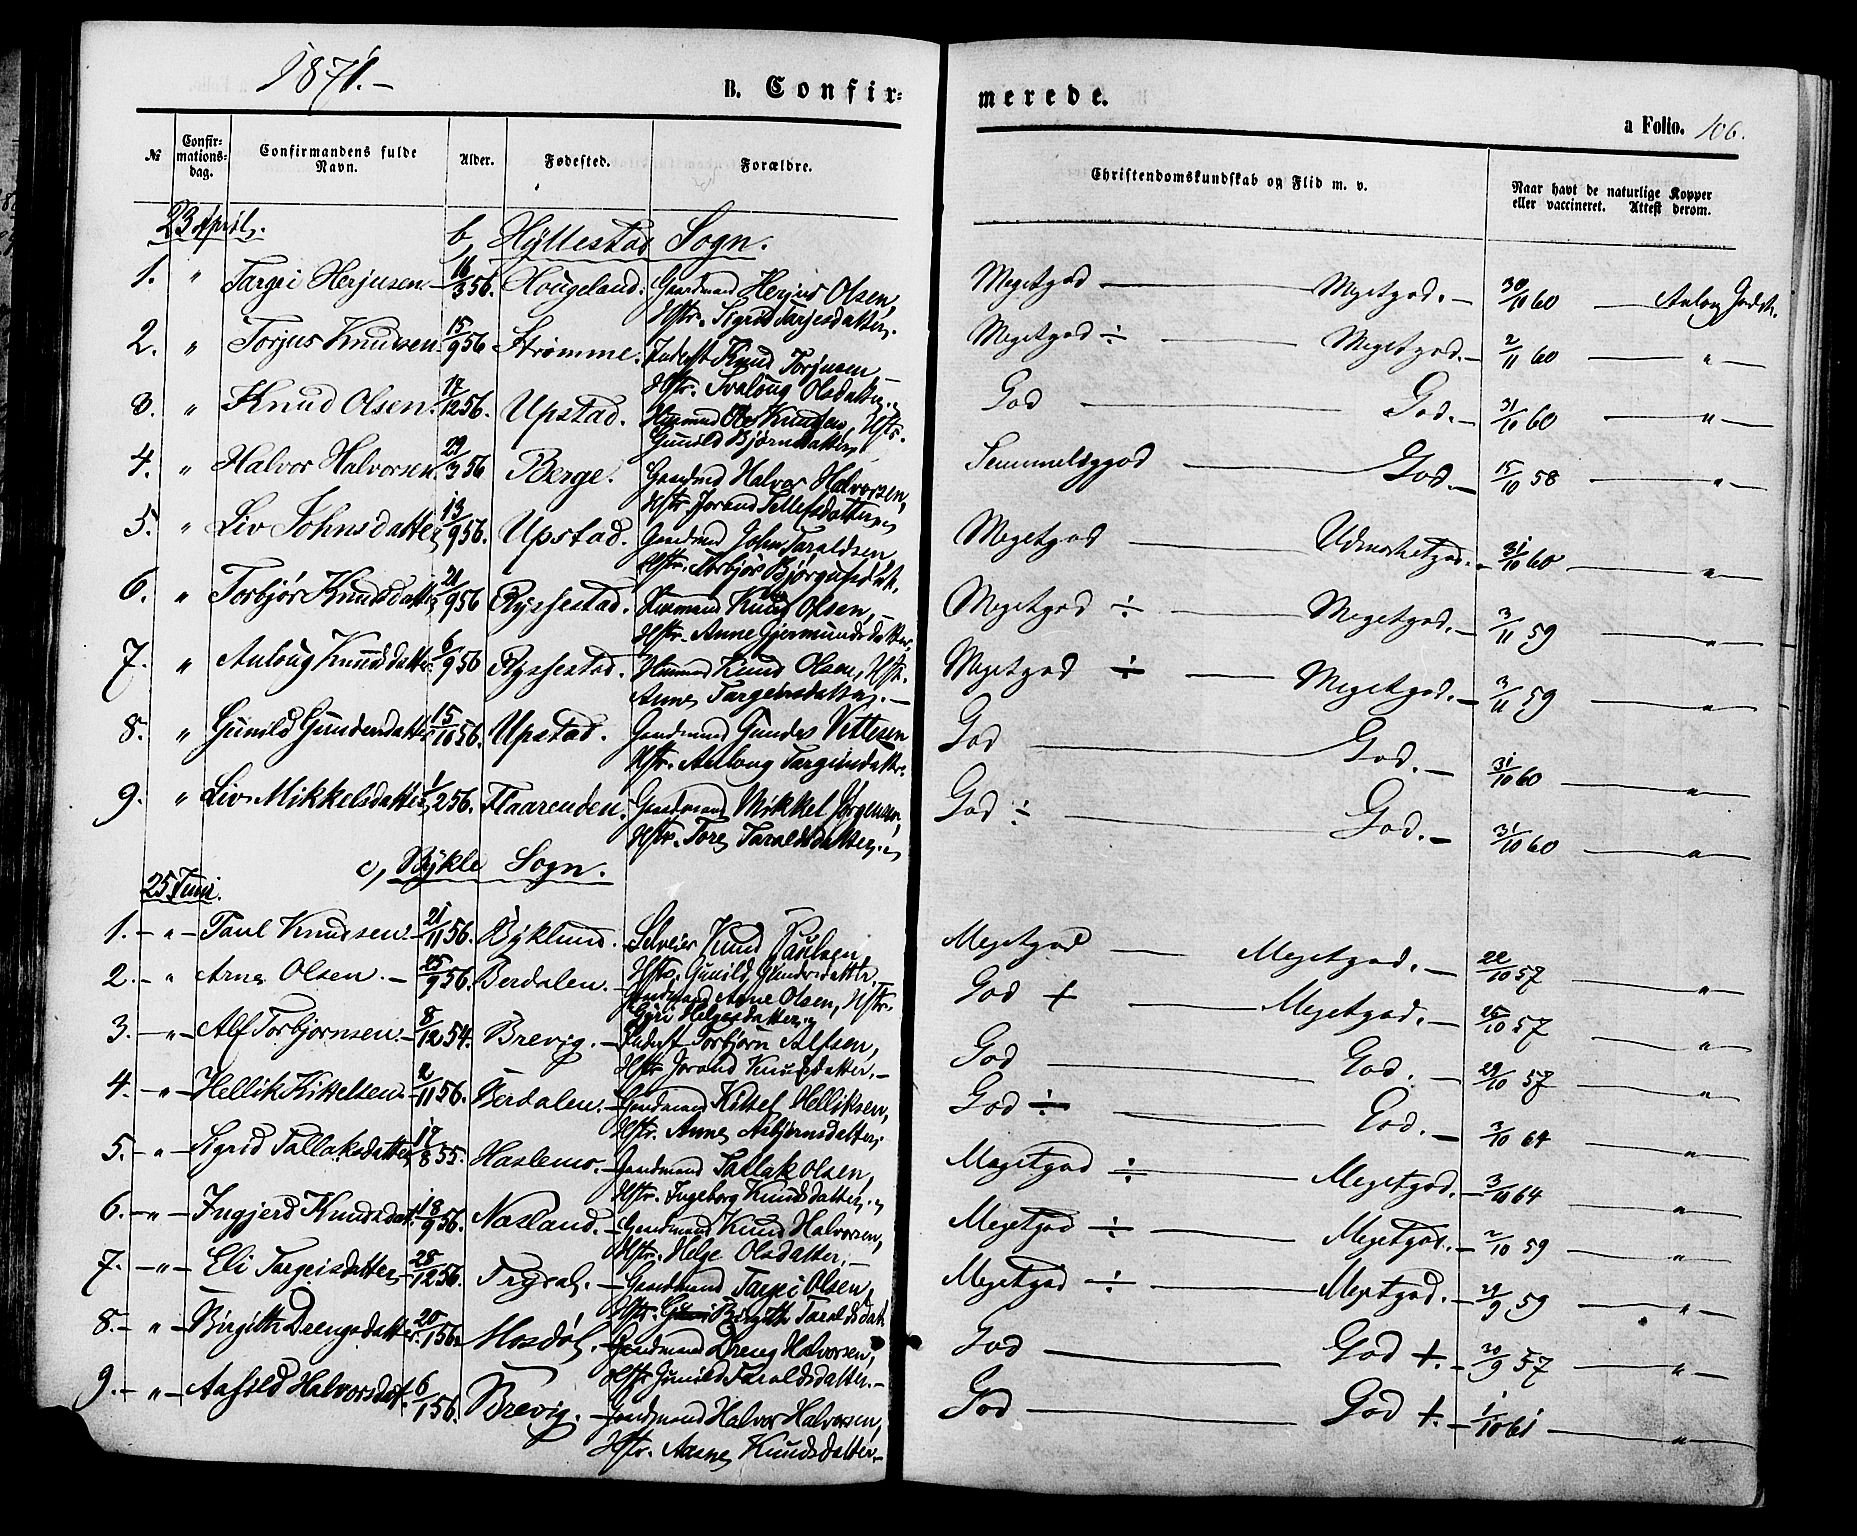 1871.-
B. Confir-
merede.
a Folio. 106.
№ Confirmations-dag. Confirmandens fulde Navn. Alder. Fødested. Forældre. Christendomskundskab og Flid m. v. Naar havt de naturlige Kopper eller vaccineret. Attest derom.
23 April. b, Hyllestad Sogn.
1. " Targei Herjusen 16/3 56. Hougeland. Gaardmand Herjus Olsen, Megetgod — Megetgod. — 30/10 60 —
Hstr. Sigrid Tarjesdatter.
2. " Torjus Knudsen 15/9 56 Strømme. Inderst Knud Torjusen — Megetgod ÷ — Megetgod. — 2/11 60 — " —
Hstr. Svaloug Olsdatter.
3. " Knud Olsen. 17/12 56. Upstad. Ole Knudsen, Hstr. God — God. — 31/10 60 — "
Gunild Bjørnsdatter
4. " Halvor Halvorsen 29/3 56 Berge. Gaardmd Halvor Halvorsen, Temmeliggod — God. — 15/10 58 — " —
Hstr. Jorand Tellefsdatter
5. " Liv Johnsdatter 13/9 56. Upstad. Gaardmd John Taraldsen Megetgod — Udmerketgod. — 31/10 60 — " —
Hstr. Torbjør
6. " Torbjør Knudsdatter 21/9 56 Ryssestad. Huusmand Knud Olsen, — Megetgod ÷ — Megetgod. — 3/11 59 — "
Hstr. Anne Gjermundsdatter
7. " Anloug Knudsdatter 6/9 56 Ryssestad. Knud Olsen, Hstr. Megetgod ÷ — Megetgod. — 3/11 59 — " —
Anne Targeisdatter. —
8. " Gunild Gundersdatter 15/10 56. Upstad. Gaardmand Vettesen God — God. — 31/10 60 — "
Hstr. Anloug Targeisdatter.
9. " Liv Mikkelsdatter 1/2 56. Flaarenden. Gaardmand Mikkel Jørgensen, God ÷ — God. — 31/10 60 — "
Hstr. Tore Taraldsdatter
c, Bykle Sogn.
25 Juni.
1. — " — Paul Knudsen. 21/11 56. Byklund. Selveier Knud Paulsen, Megetgod — Megetgod. — 22/10 57 — "
Hstr. Gunild Gundersdatter
2. — " Arne Olsen. — 25/9 56. Berdalen. — Gaardmand Olsen, Hstr. God + — Megetgod. — 26/10 57 — "
Gyri Helgesdatter
3. — " — Alf Torbjørnsen. 8/12 54. Brevig. — Inderst Torbjørn Alfsen, God — God. — 29/10 57 — "
Hstr Jorand Knudsdatter. —
4. — " — Hellik Kittelsen. 2/11 56. Berdalen. — Gaardmand Kittel Helliksen, God ÷ — God. — 3/10 64 — "
Hstr. Anne Asbjørnsdatter,
5. — " — Sigrid Tallaksdatter 17/8 55. Haslemo. — Gaardmand Tallak Olsen, Megetgod ÷ — Megetgod. — 3/10 64 — "
Hstr. Ingeborg Knudsdatter.
6. — " — Ingjerd Knudsdat. 18/9 56. Nasland. — Gaardmand Knud Halvorsen, Megetgod ÷ — Megetgod. — 2/10 59 — "
Hstr. Helge Olsdatter. —
7. — " — Eli Targeisdatter 28/12 56. Trydal. — Gaardmand Targei Olsen, Megetgod ÷ — Megetgod. — 21/9 59 — " —
Hstr. Birgith Taraldsdatt
8. — " — Birgith Drengsdatter 20/1 56. Mosdøl. — Gaardmand Dreng Halvorsen, God — God +. — 20/9 57 — " —
Hstr Gunild Taraldsdatter. —
9. — " — Aasild Halvorsdat. 6/1 56. Brevig. — Gaardmand Halvor Halvorsen, God — God +. — 1/10 61 — " —
Hstr. Aasne Knudsdatter. —